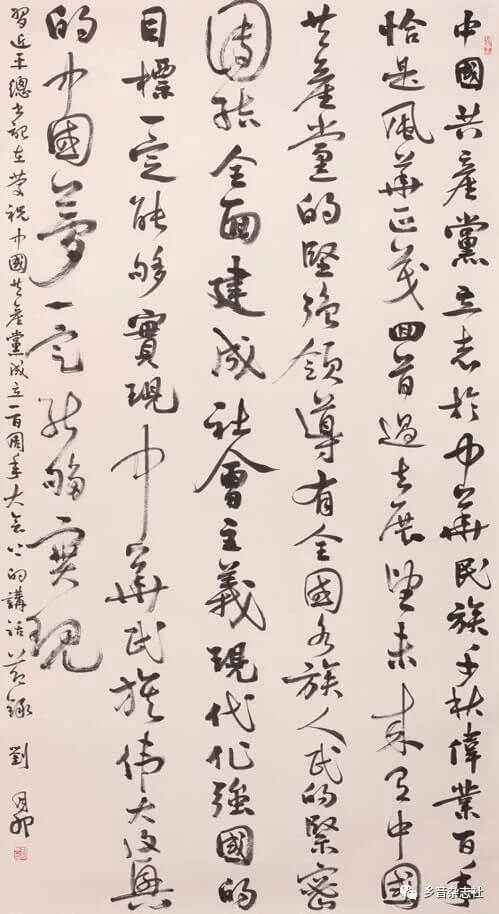 中國共產黨立志於中華民族千秋偉業百年
恰是風華正茂回首過去展望未來有中國
共產黨的堅強領導有全國各族人民的緊密
團結全面建成社會主義現代化強國的
目標一定能夠實現中華民族伟大復興
的中國夢一定能夠實現
習近平總書記在慶祝中國共產黨成立一百周年大會上的講話節錄 劉月卯
乡音杂志社